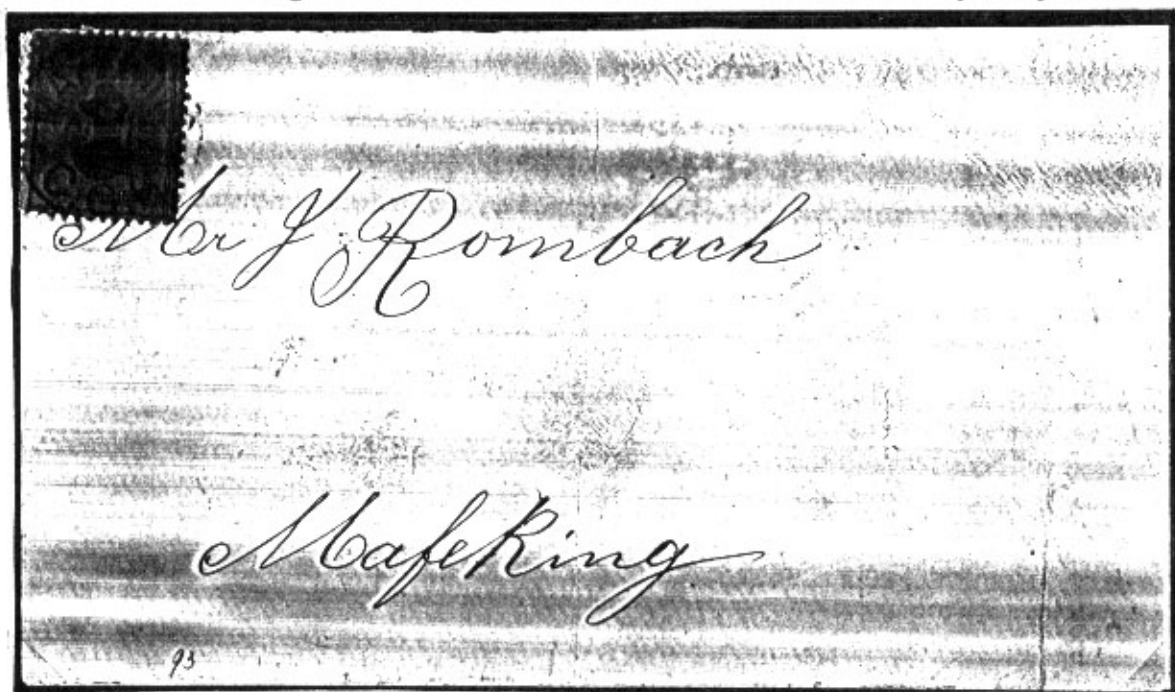 Mr J. Rombach
Mafeking
93